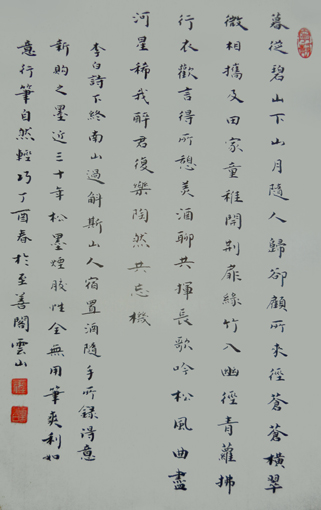 暮從碧山下山月隨人歸卻顧所來徑蒼蒼橫翠
微相攜及田家童稚開荆扉綠竹入幽徑青蘿拂
行衣歡言得所憩美酒聊共揮長歌吟松風曲盡
河星稀我醉君復樂陶然共忘機
李白詩下終南山過斛斯山人宿置酒隨手所錄得意
新購之墨近三十年松墨煙膠性全無用筆爽利如
意行筆自然輕巧丁酉春於至善閣雲山